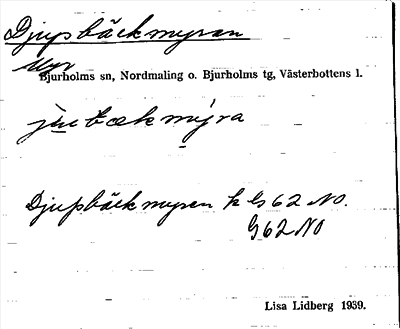 Djupbäckmyran
Myr
Bjurholms sn, Nordmaling o. Bjurholms tg, Västerbottens l.
jʉtbækmýra
Djupbäckmyren k G62 NO.
G62 NO
Lisa Lidberg 1939.